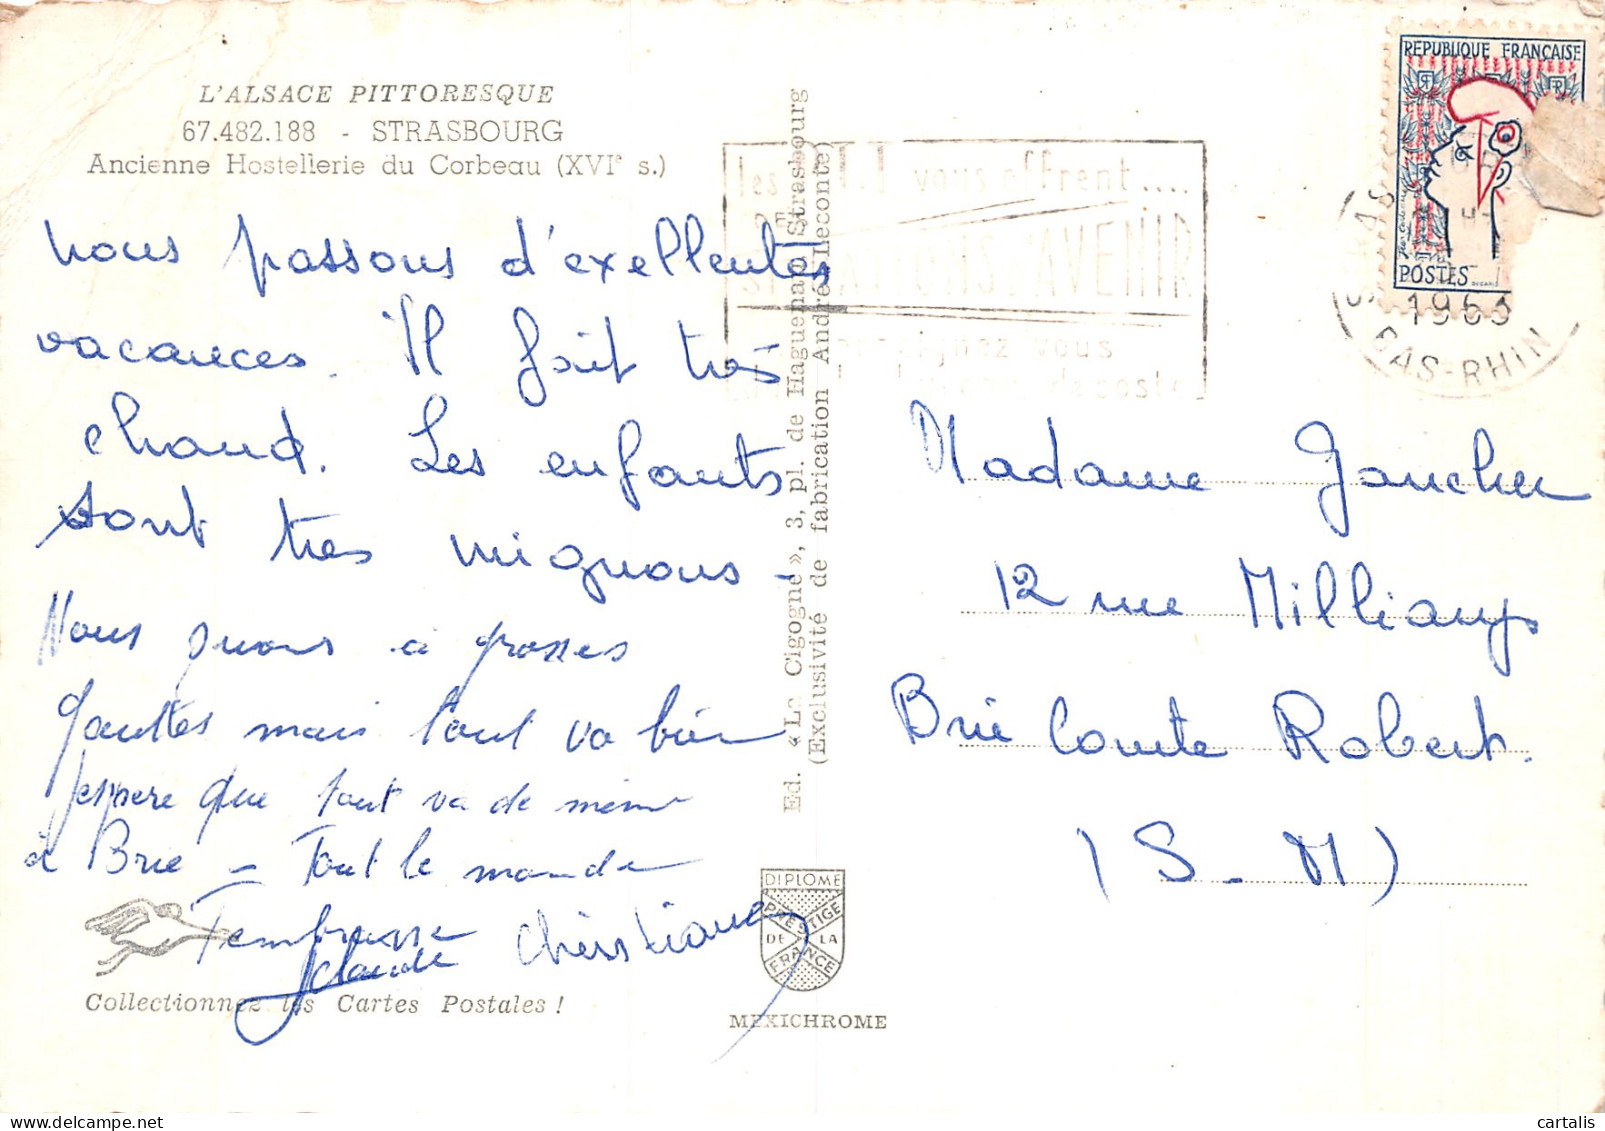 L'ALSACE PITTORESQUE
67.482.188 - STRASBOURG
Ancienne Hostellerie du Corbeau (XVIe s.)
nous passons d'exellentes
vacances. Il fait très
chaud. Les enfants
sont tres mignons -
Nous suons à grosses
gouttes mais tout va bien
J'espere que tout va de même
à Brie = Tout le monde
t'embrasse
Claude Christiane
Collectionnez les Cartes Postales !
Ed. «La Cigogne», 3, pl. de Haguenau, Strasbourg
(Exclusivité de fabrication André Leconte)
DIPLOME
PRESTIGE
DE LA
FRANCE
MEXICHROME
les P.T.T vous offrent....
SITUATIONS D'AVENIR
renseignez vous
de poste
REPUBLIQUE FRANÇAISE
RF
POSTES
1963
BAS-RHIN
Madame Gaucher
12 rue Milliamps
Brie Comte Robert.
(S - M)
cartalis